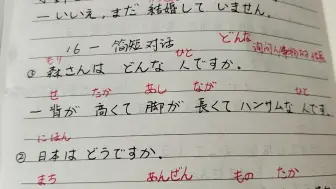 一 いいえ、まだ 結婚して いません。
16 一 简短对话
どんな
もり ひと
① 森さんは どんな 人ですか。
せ たか あし なが ひと
一 背が 高くて 脚が 長くて ハンサムな 人です。
にほん
② 日本は どうですか。
まち あんぜん もの たか